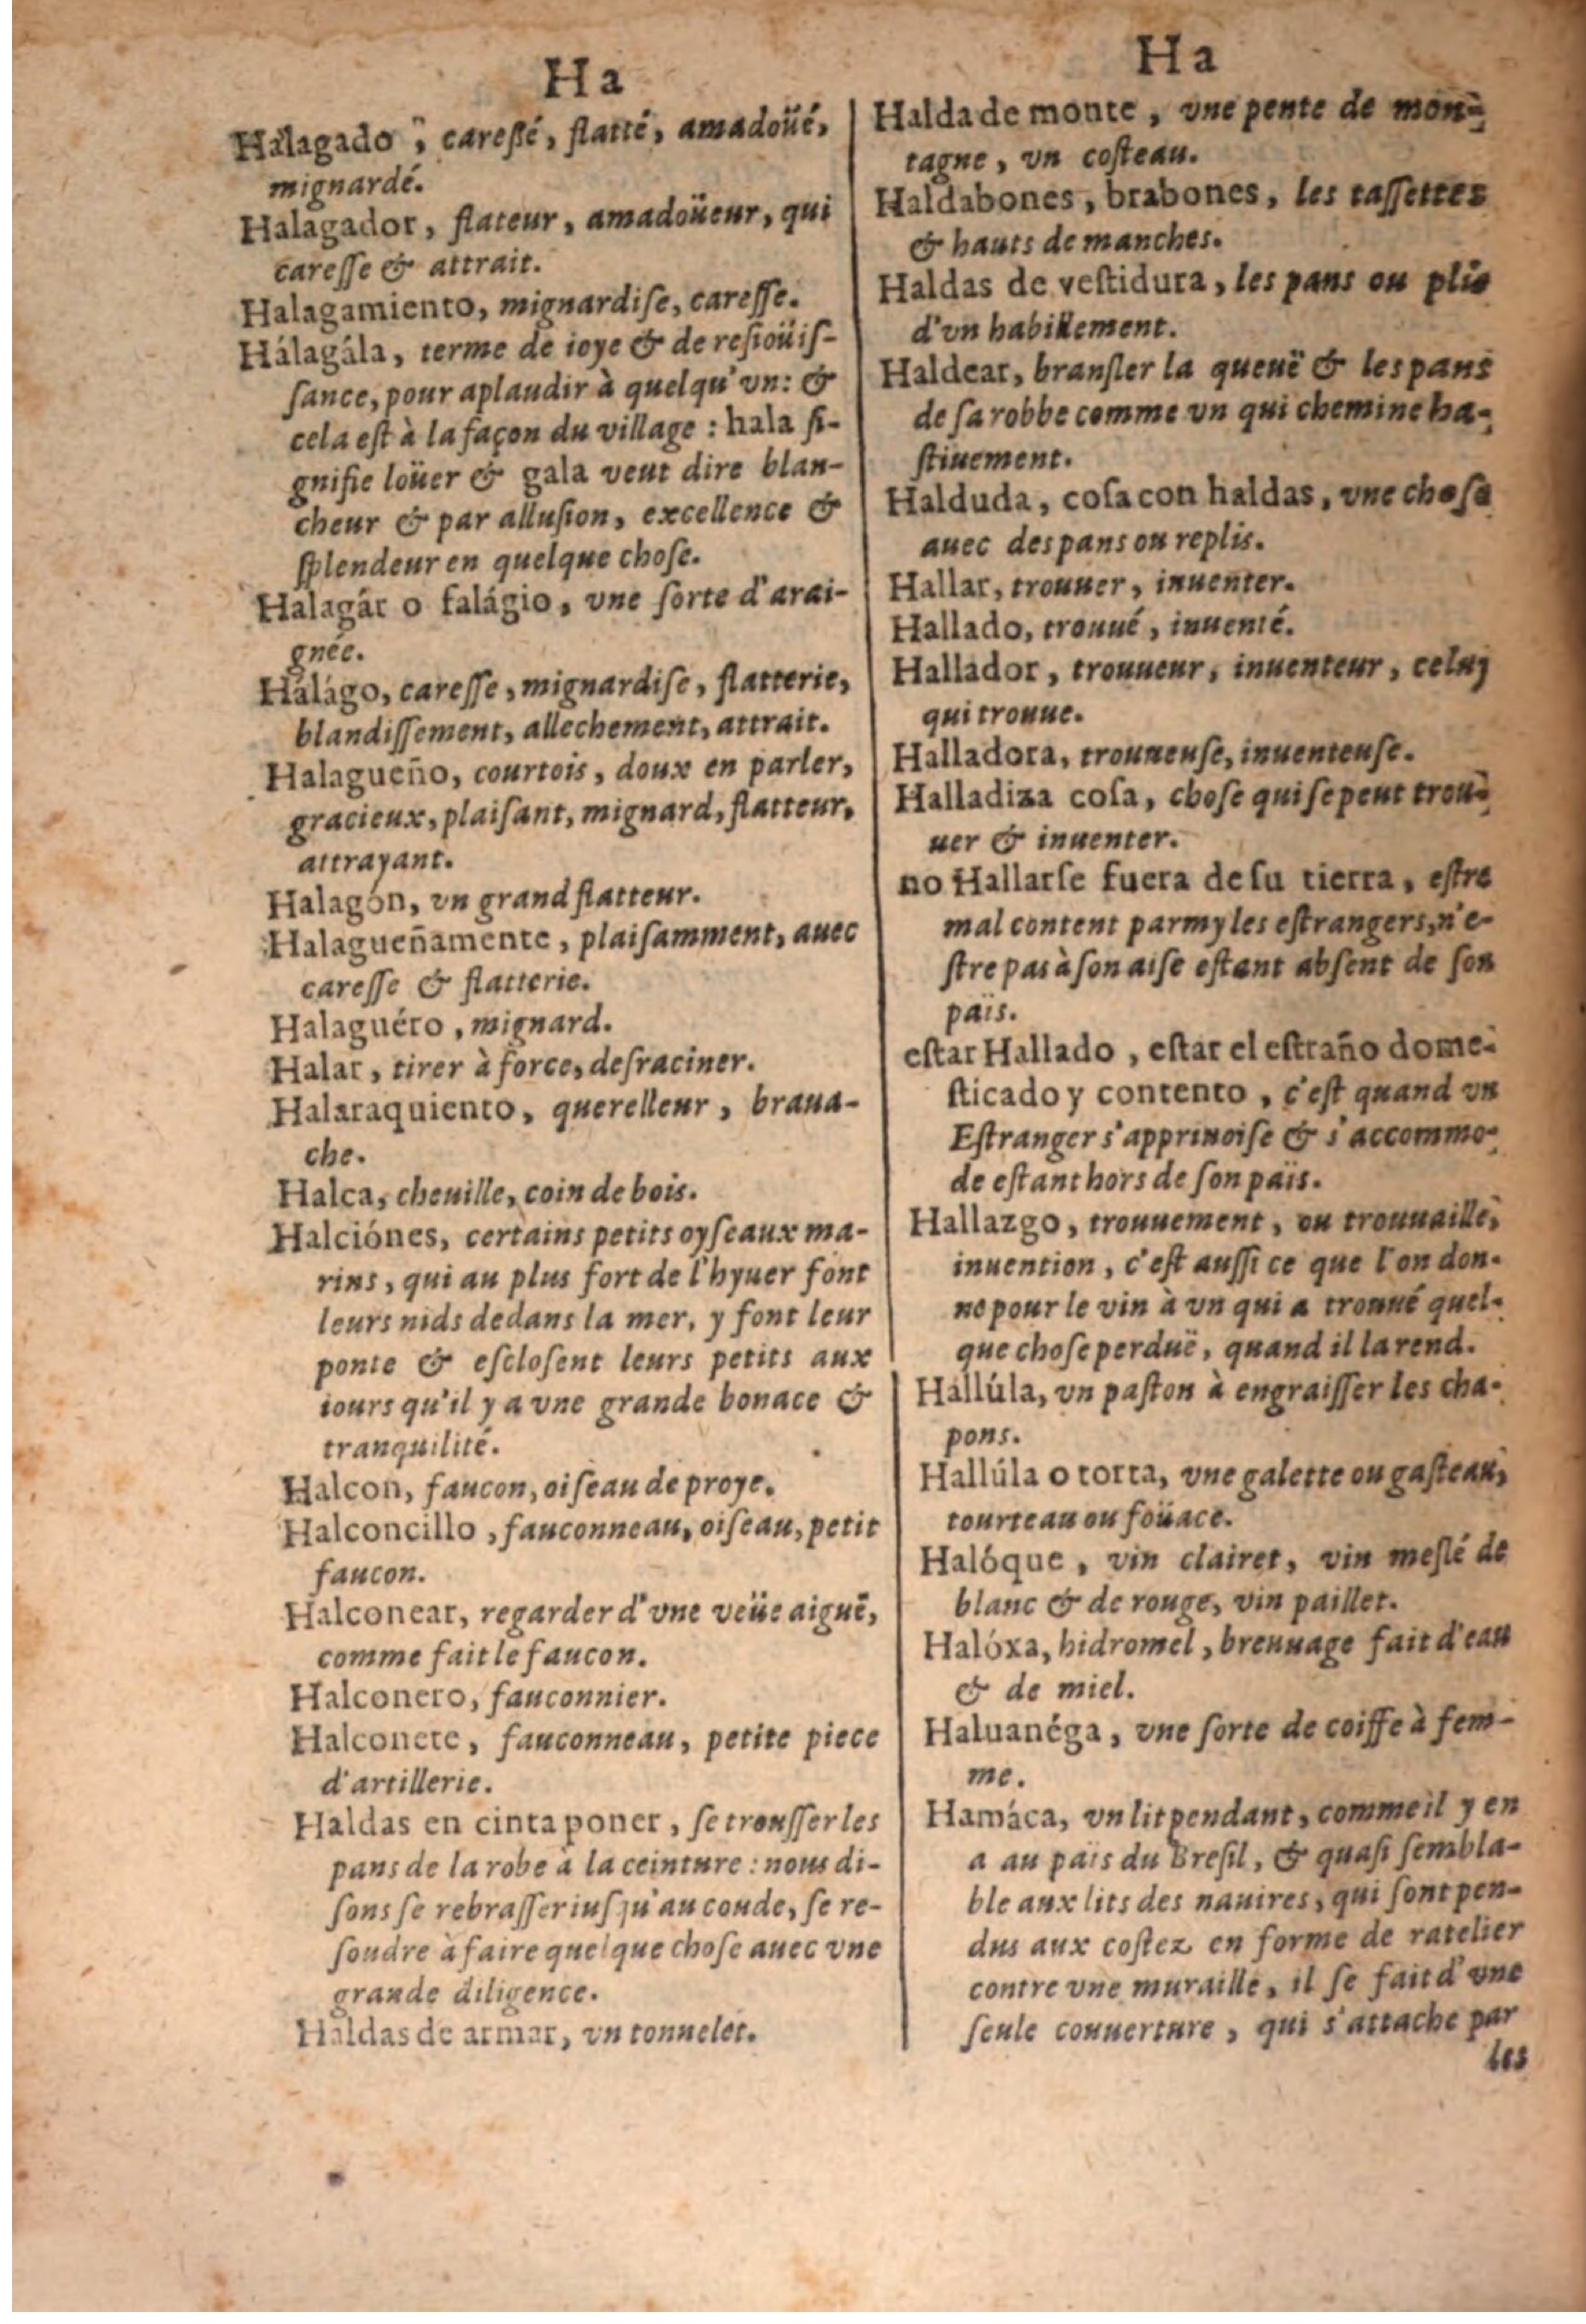 Ha
Halagado, caressé, flatté, amadoüé,
mignardé.
Halagador, flateur, amadoüeur, qui
caresse & attrait.
Halagamiento, mignardiſe, careſſe.
Hálagála, terme de ioye & de resioüiſ-
ſance, pour aplaudir à quelqu'vn: &
cela est à la façon du village : hala ſi-
gnifie loüer & gala veut dire blan-
cheur & par alluſion, excellence &
ſplendeur en quelque choſe.
Halagár o falágio, vne ſorte d'arai-
gnée.
Hálágo, careſſe, mignardiſe, flatterie,
blandiſſement, allechement, attrait.
Halagueño, courtois, doux en parler,
gracieux, plaiſant, mignard, flatteur,
attrayant.
Halagón, vn grand flatteur.
Halagueñamente, plaiſamment, auec
careſſe & flatterie.
Halaguéro, mignard.
Halar, tirer à force, deſraciner.
Halaraquiento, querelleur, braua-
che.
Halca, cheuille, coin de bois.
Halciónes, certains petits oyſeaux ma-
rins, qui au plus fort de l'hyuer font
leurs nids dedans la mer, y font leur
ponte & eſcloſent leurs petits aux
iours qu'il y a vne grande bonace &
tranquilité.
Halcon, faucon, oiſeau de proye.
Halconcillo, fauconneau, oiſeau, petit
faucon.
Halconear, regarder d'vne veüe aiguë,
comme fait le faucon.
Halconero, fauconnier.
Halconete, fauconneau, petite piece
d'artillerie.
Haldas en cinta poner, ſe trouſſer les
pans de la robe à la ceinture : nous di-
ſons ſe rebraſſer iuſqu'au coude, ſe re-
ſoudre à faire quelque choſe auec vne
grande diligence.
Haldas de armar, vn tonnelet.
Ha
Halda de monte, vne pente de mon-
tagne, vn coſteau.
Haldabones, brabones, les taſſettes
& hauts de manches.
Haldas de veſtidura, les pans ou plis
d'vn habillement.
Haldear, branſler la queuë & les pans
de ſa robbe comme vn qui chemine ha-
ſtiuement.
Halduda, coſa con haldas, vne choſe
auec des pans ou replis.
Hallar, trouuer, inuenter.
Hallado, trouué, inuenté.
Hallador, trouueur, inuenteur, celuy
qui trouue.
Halladora, trouueuſe, inuenteuſe.
Halladiza coſa, choſe qui ſe peut trou-
uer & inuenter.
no Hallarſe fuera de ſu tierra, eſtre
mal content parmy les eſtrangers, n'e-
ſtre pas à ſon aiſe eſtant abſent de ſon
païs.
eſtar Hallado, eſtar el eſtraño dome-
ſticado y contento, c'eſt quand vn
Eſtranger s'appriuoiſe & s'accommo-
de eſtant hors de ſon païs.
Hallazgo, trouuement, ou trouuaille,
inuention, c'eſt auſſi ce que l'on don-
ne pour le vin à vn qui a trouué quel-
que choſe perduë, quand il la rend.
Hallúla, vn paſton à engraiſſer les cha-
pons.
Hallúla o torta, vne galette ou gaſteau,
tourteau ou foüace.
Halóque, vin clairet, vin meſlé de
blanc & de rouge, vin paillet.
Halóxa, hidromel, breuuage fait d'eau
& de miel.
Haluanéga, vne ſorte de coiffe à fem-
me.
Hamáca, vn lit pendant, comme il y en
a au païs du Breſil, & quaſi ſembla-
ble aux lits des nauires, qui ſont pen-
dus aux coſtez en forme de ratelier
contre vne muraille, il ſe fait d'vne
ſeule couuerture, qui s'attache par
les